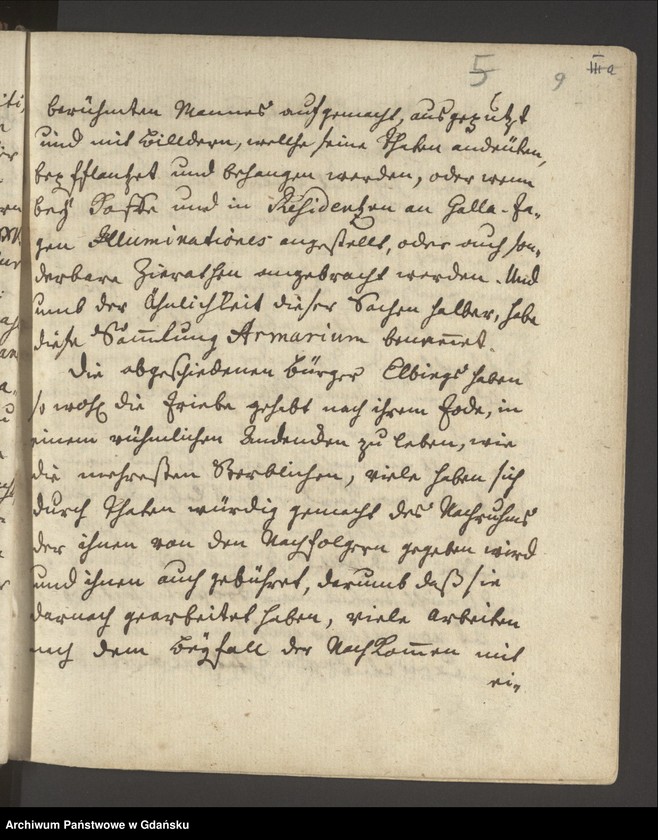 5 9 III a
berühmten Mannes aufgemacht, ausgeputzt
und mit Billdern, wellche seine Thaten andeüten,
bepfflantzet und behangen werden, oder wenn
bey Hoffe und in Residentzen an Galla-Ta-
gen Illuminationes angestellt, oder auch son-
derbare Zierathen angebracht werden. Und
umb der Ähnlichkeit dieser Sachen halber, habe
diese Sam̅lung Armarium benen̅et.
Die abgeschiedenen Bürger Elbings haben
so wohl die Triebe gehabt nach ihrem Tode, in
einem rühmlichen Andencken zu leben, wie
die mehresten Sterblichen, viele haben sich
durch Thaten würdig gemacht des Nachruhms
der ihnen von den Nachfolgern gegeben wird
und ihnen auch gebühret, darumb daß sie
darnach gearbeitet haben, viele arbeiten
nach dem Beyfall der Nachkom̅en mit
ei-
Archiwum Państwowe w Gdańsku